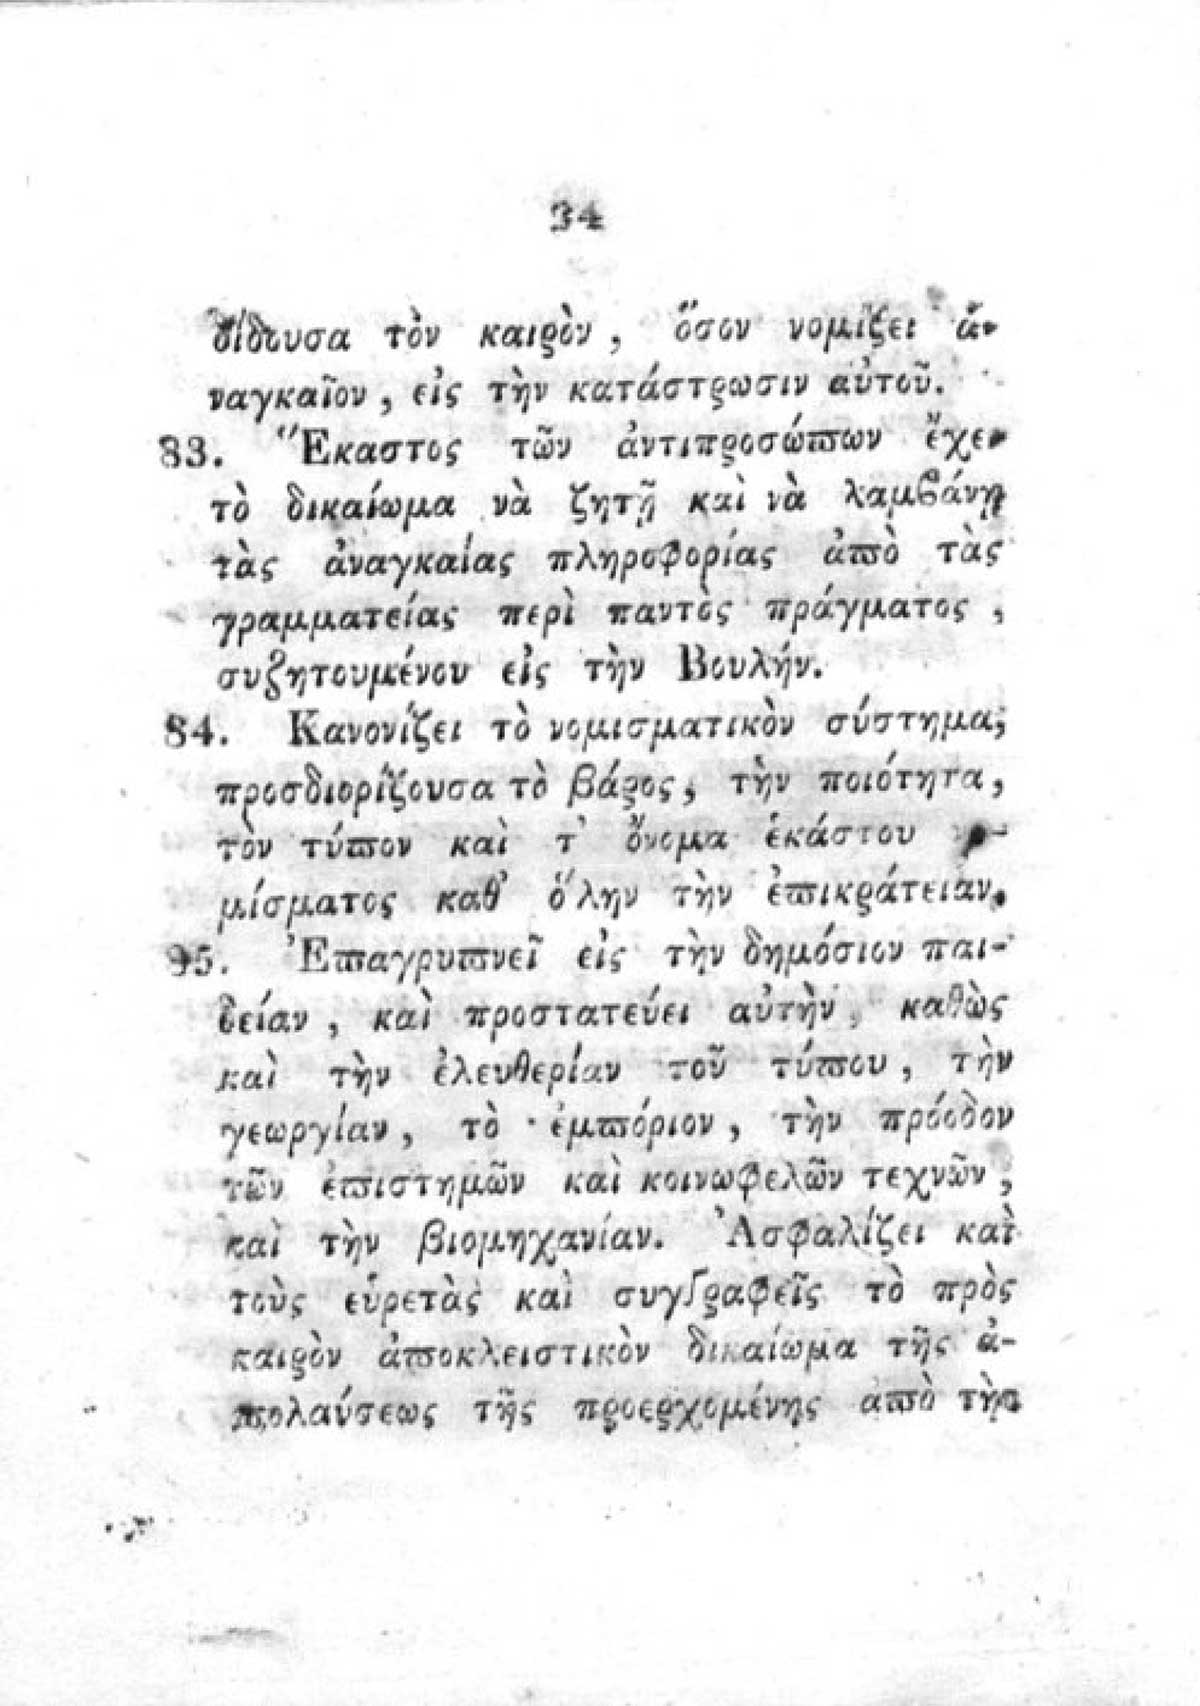 34
δίδουσα τὸν καιρὸν, ὅσον νομίζει ἀ-
ναγκαῖον, εἰς τὴν κατάστρωσιν αὐτοῦ.
83. Ἕκαστος τῶν ἀντιπροσώπων ἔχει
τὸ δικαίωμα νὰ ζητῇ καὶ νὰ λαμβάνῃ
τὰς ἀναγκαίας πληροφορίας ἀπὸ τὰς
γραμματείας περὶ παντὸς πράγματος,
συζητουμένου εἰς τὴν Βουλήν.
84. Κανονίζει τὸ νομισματικὸν σύστημα,
προσδιορίζουσα τὸ βάρος, τὴν ποιότητα,
τὸν τύπον καὶ τ' ὄνομα ἑκάστου
μίσματος καθ' ὅλην τὴν ἐπικράτειαν.
95. Ἐπαγρυπνεῖ εἰς τὴν δημόσιον παι-
δείαν, καὶ προστατεύει αὐτὴν, καθὼς
καὶ τὴν ἐλευθερίαν τοῦ τύπου, τὴν
γεωργίαν, τὸ ἐμπόριον, τὴν πρόοδον
τῶν ἐπιστημῶν καὶ κοινωφελῶν τεχνῶν,
καὶ τὴν βιομηχανίαν. Ἀσφαλίζει καὶ
τοὺς εὑρετὰς καὶ συγγραφεῖς τὸ πρὸς
καιρὸν ἀποκλειστικὸν δικαίωμα τῆς ἀ-
πολαύσεως τῆς προερχομένης ἀπὸ τὴν